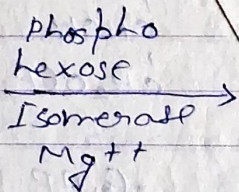 phospho
hexose
Isomerase
Mg++